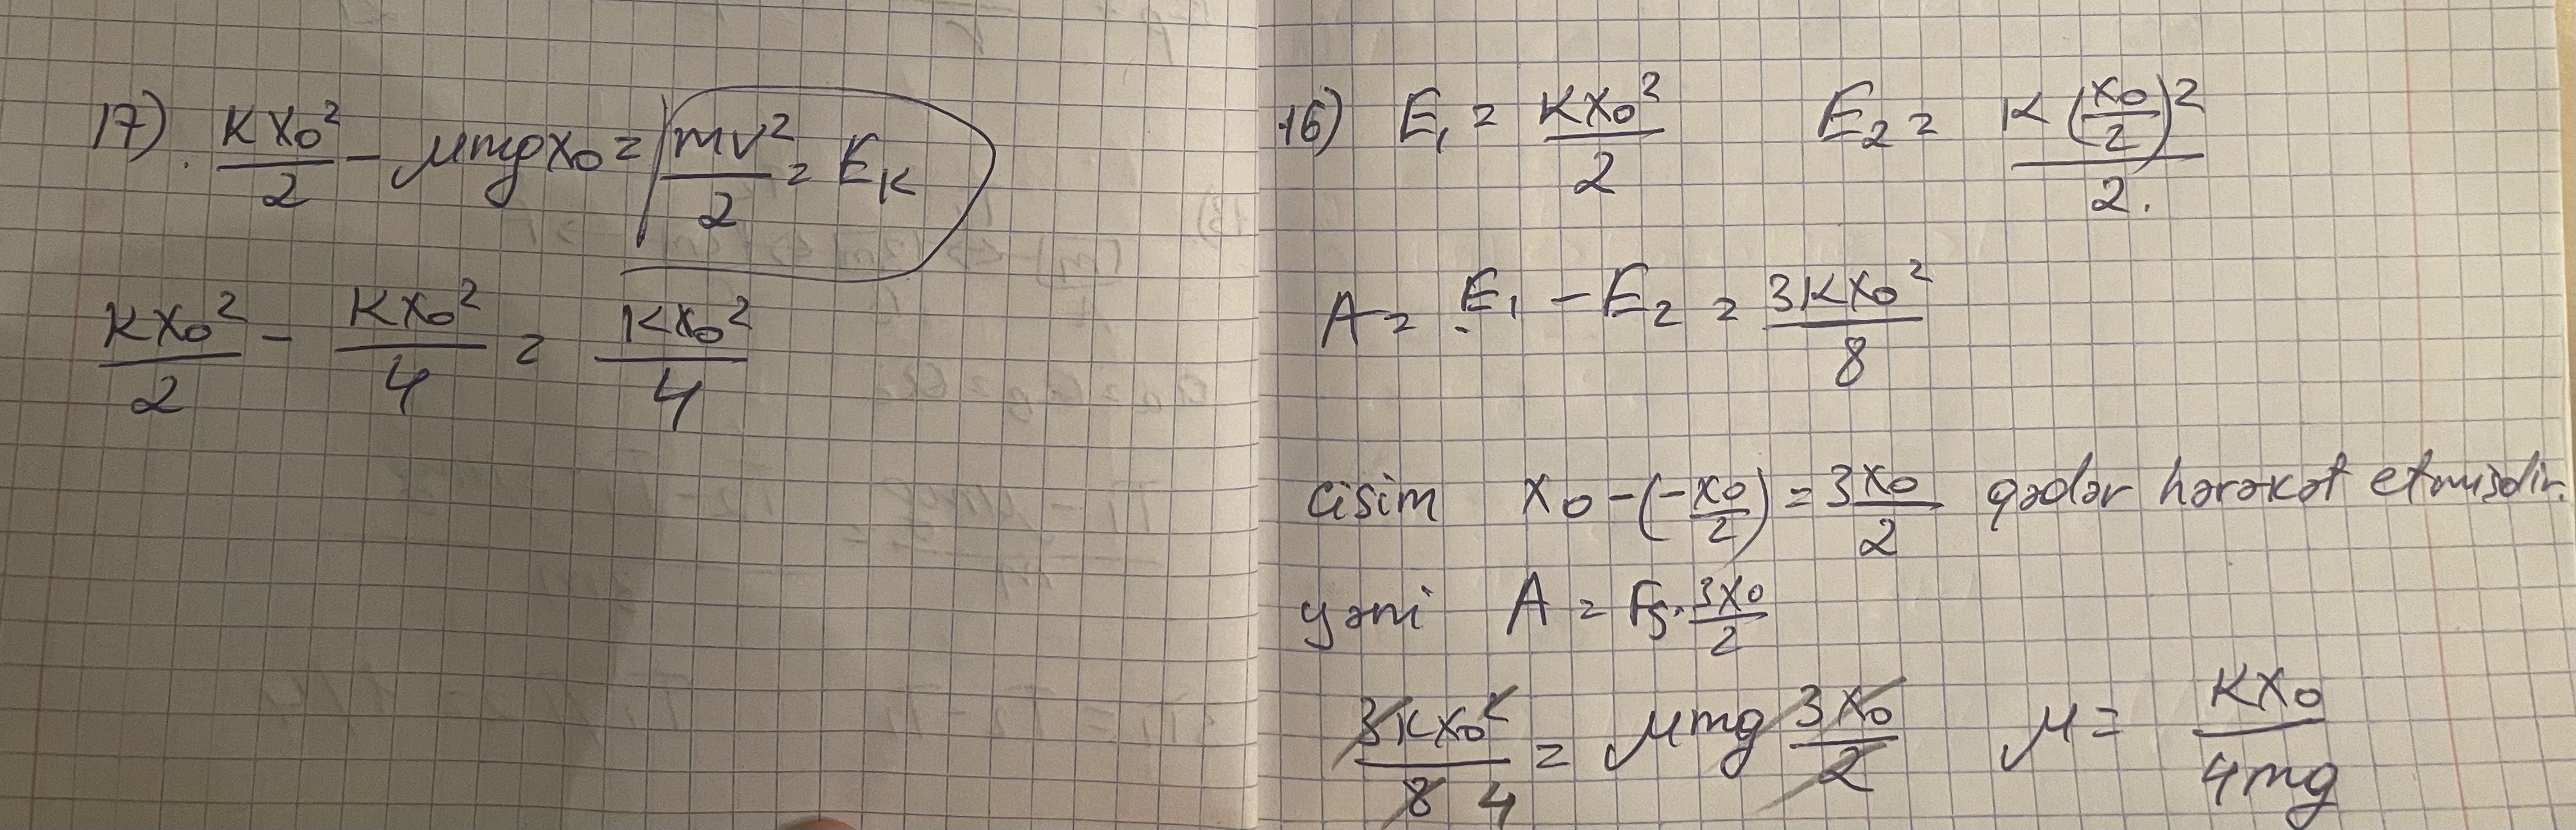 17). KX₀²/2 - μmgX₀ = mv²/2 = Eₖ
KX₀²/2 - KX₀²/4 = KX₀²/4
16) E₁ = KX₀²/2 E₂ = K(X₀/2)²/2.
A = E₁ - E₂ = 3KX₀²/8
cisim X₀-(-X₀/2) = 3X₀/2 qədər hərəkət etmişdir.
yəni A = Fs · 3X₀/2
3KX₀²/8 4 = μmg 3X₀/2 μ = KX₀/4mg